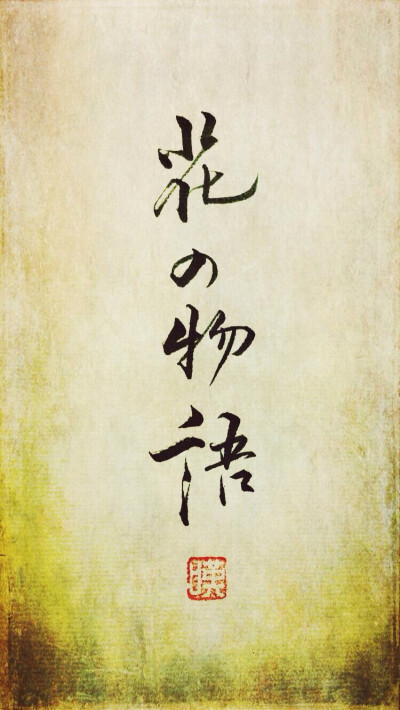 花の物語